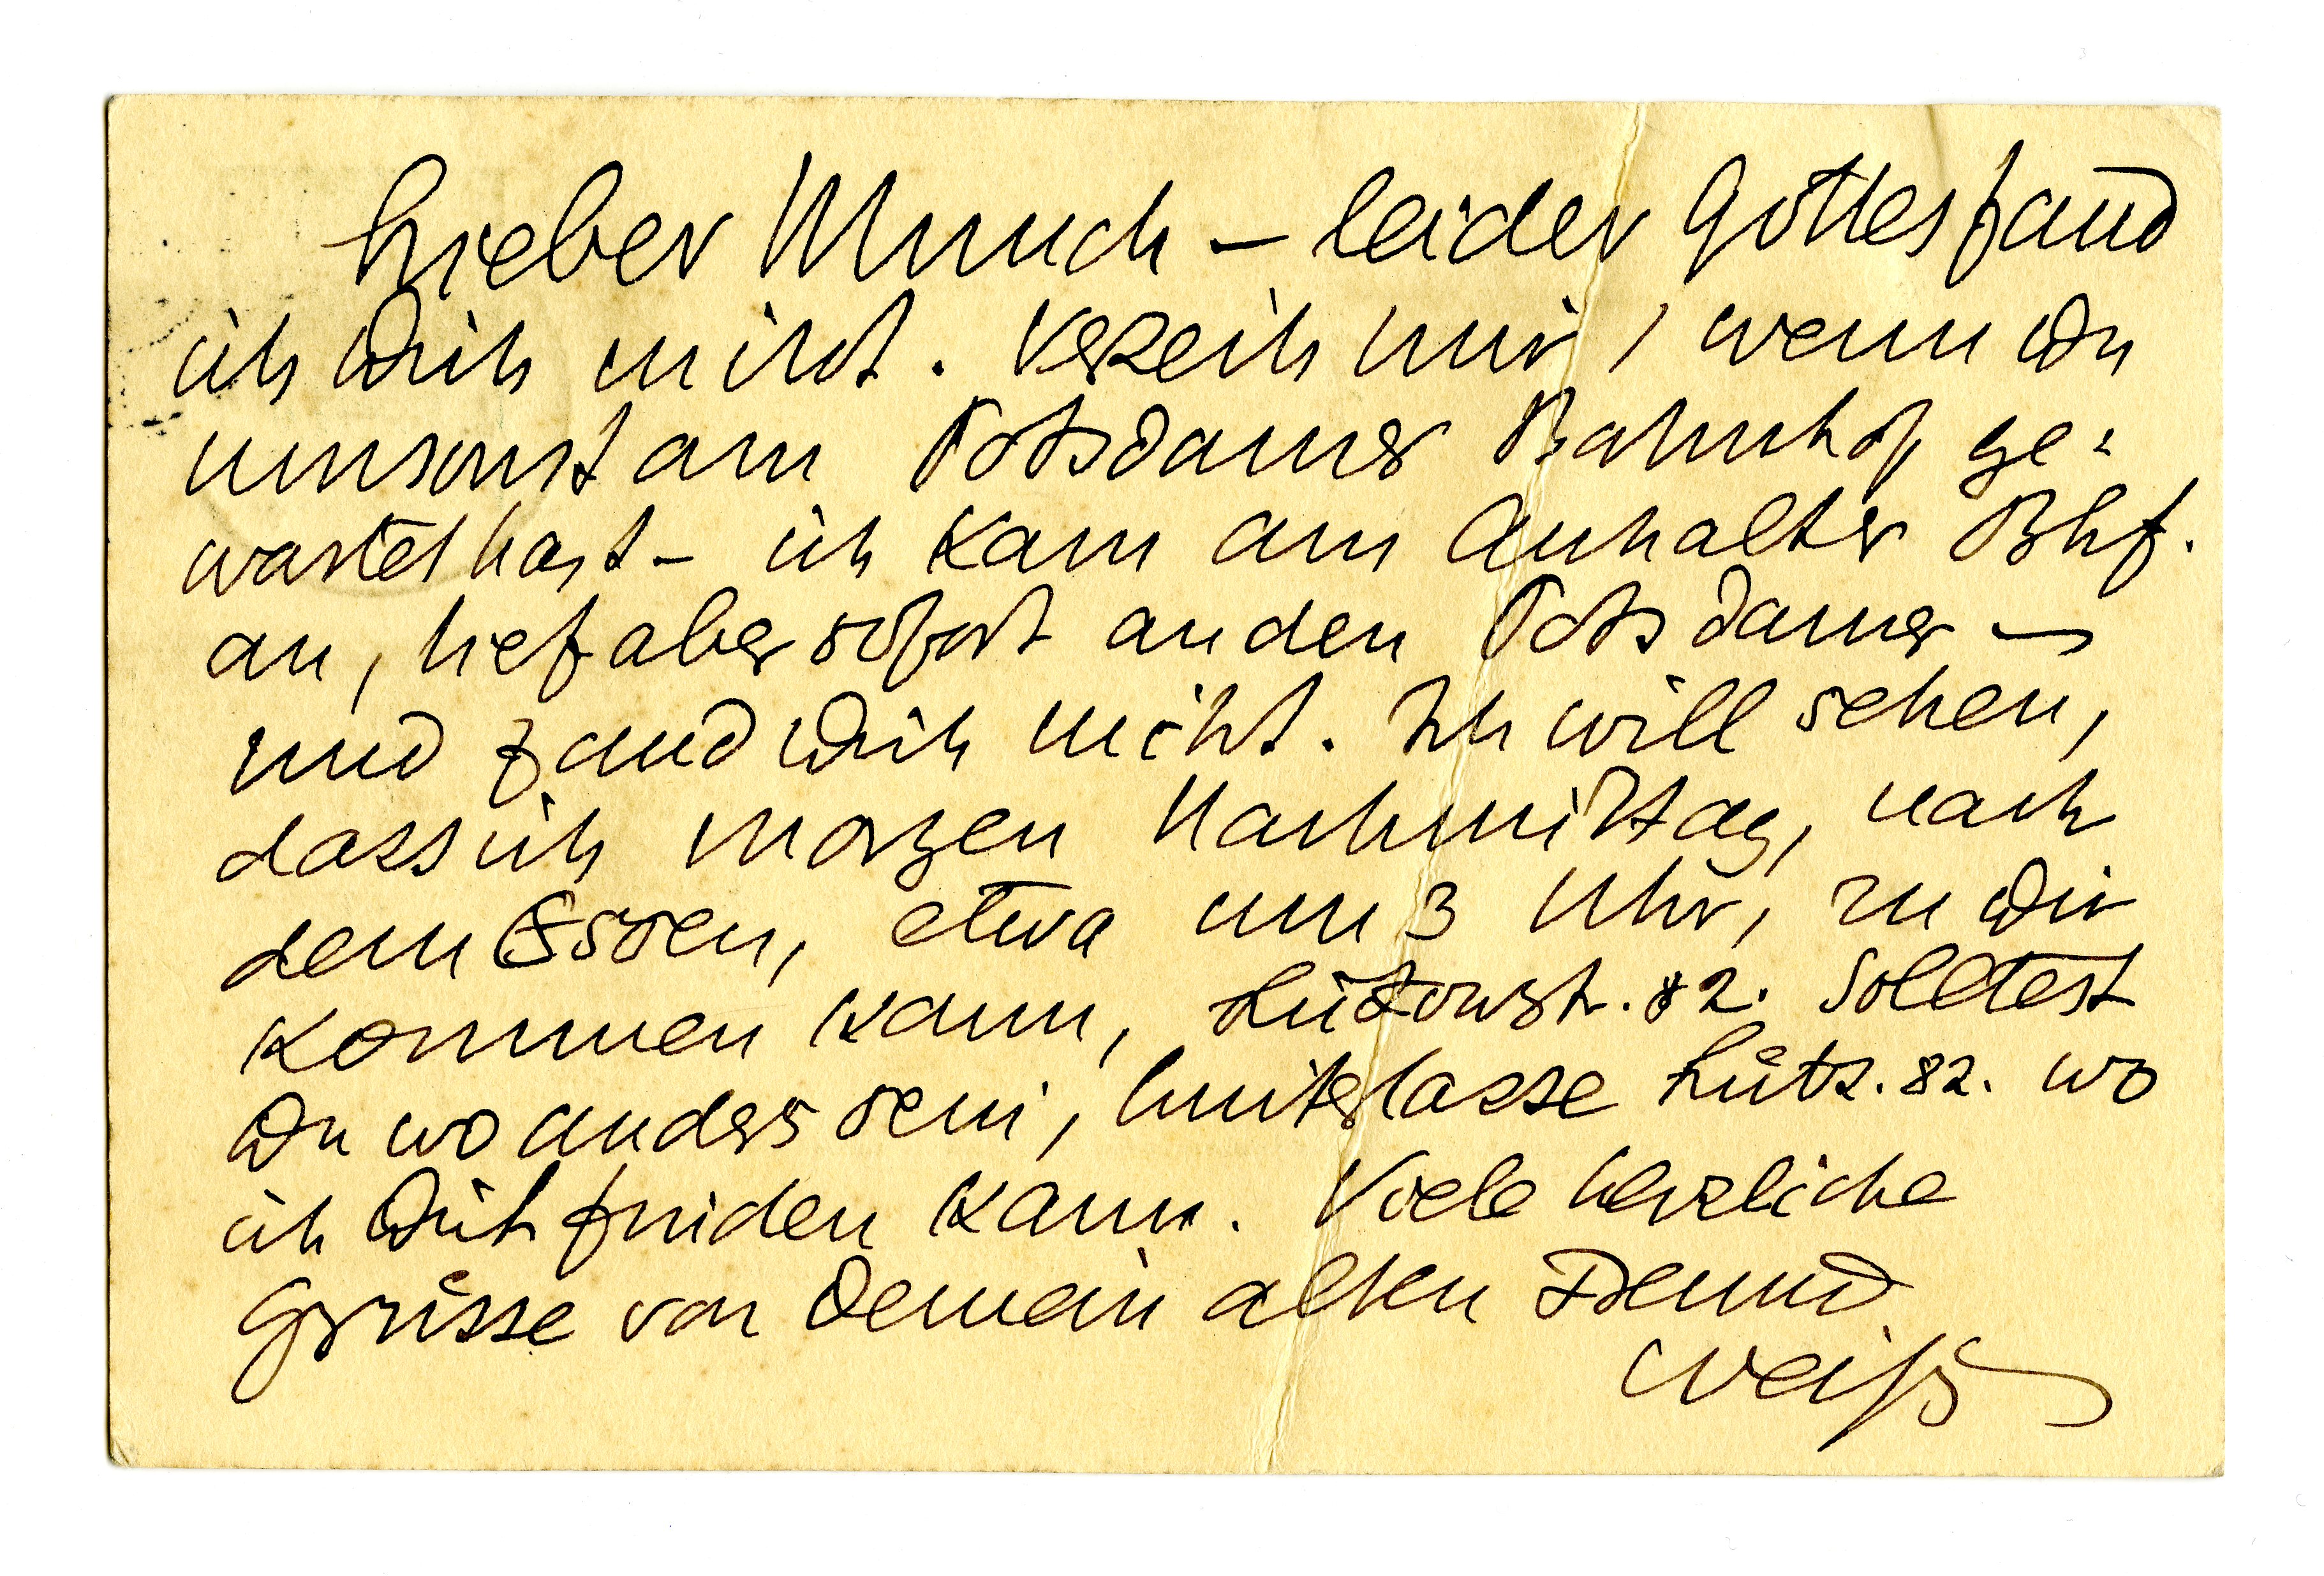 Lieber Munch – leider Gottes fand
ich Dich nicht. Verzeih mir, wenn Du
umsonst am Potsdamer Bahnhof ge=
wartet hast – ich kam am Anhalter Bhf.
an, lief aber sofort an den Potsdamer –
und fand Dich nicht. Ich will sehen,
dass ich morgen Nachmittag, nach
dem Essen, etwa um 3 Uhr, zu Dir
kommen kann, Lützowstr. 82. Solltest
Du wo anders sein, hinterlasse Lütz. 82. wo
ich Dich finden kann. Viele herzliche
Grüsse von Deinem alten Freund
Weiß